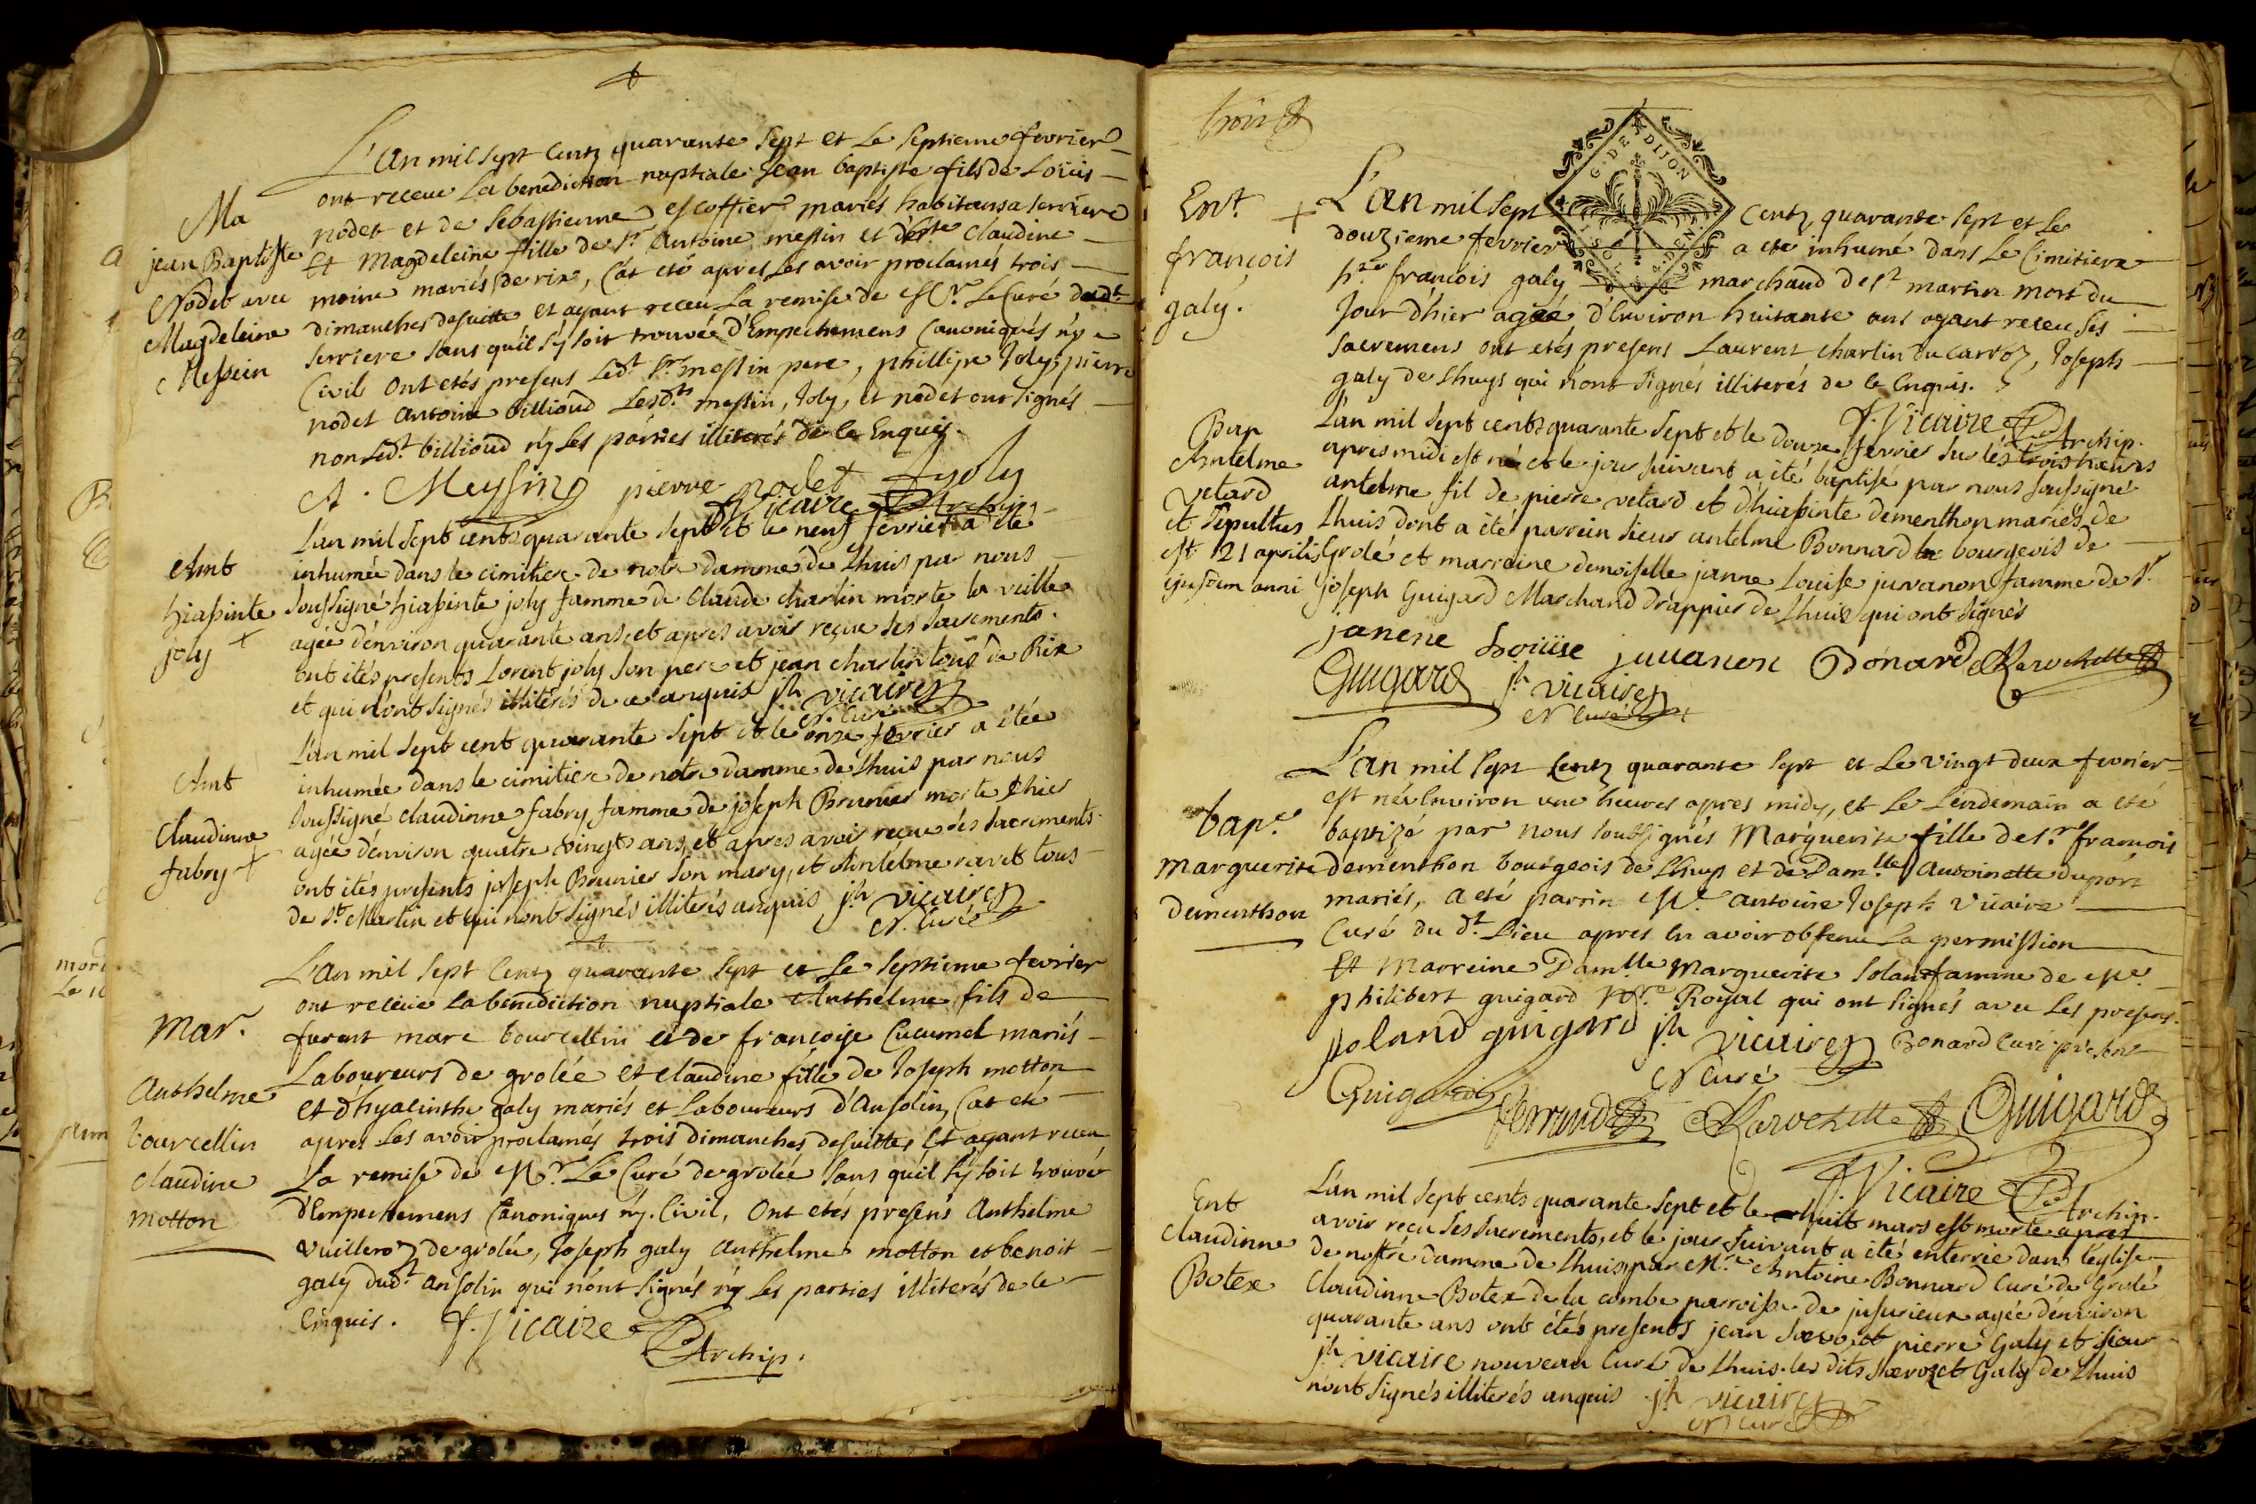 Ma
jean Baptiste
Nodet avec
Magdeleine
Messein
L'an mil sept centz quarante sept et le septieme fevrier
ont receue La benediction nuptiale Jean baptiste fils de Loüis
nodet et de sebastienne escoffier mariés habitans a serriere
Et Magdeleine fille de Sr antoine messin et d'hste claudine
moine mariés de rix, C'at eté apres Les avoir proclamés trois
dimanches desuitte et ayant receu La remise de Mr. Le Curé dudt
serriere sans quéil s'y soit trouvée d'Empechemens Canoniques n'y
Civils ont etés presens Ledt Sr messin pere, phillipe Joly, pierre
nodet antoine billioud Lesdts messin, Joly, et nodet ont signés
non Ledt. billioud n'y Les parties illiterés de ce Enquis.
A. Meyssin pierre nodet Jyoly
J. Vicaire Archip.
Ant
hiassinte
joly +
L'an mil sept cents quarante sept et le neuf fevrier a été
inhumée dans le cimitiere de notre damme de Lhuis par nous
soussigné hiassinte joly famme de Claude charlin morte la veille
agée d'environ quarante ans, et apres avoir reçue ses sacrements.
ont étés presents Lorent joly son pere et jean charlin tous de Rix
et qui n'ont signés illiterés de ce anquis jh vicaire
N. Curé
Ant
Claudinne
fabry +
L'an mil sept cent quarante sept et le onze fevrier a étée
inhumée dans le cimitiere de notre damme de Lhuis par nous
soussigné claudinne fabry famme de joseph Brunier morte Ehier
agée d'environ quatre vingts ans, et apres avoir reçue ses sacrements.
ont étés presents joseph Brunier son mary, et Antelme ravet tous
de St. Martin et qui n'ont signés illiterés anquis jh vicaire
N. Curé
Mar.
Anthelme
tourcellin
claudine
motton
L'an mil sept Centz quarante sept et Le septieme fevrier
ont receue La benediction nuptiale Anthelme fils de
furent marc tourcellin et de françoise Cucumel mariés
Laboureurs de grolée et claudine fille de Joseph motton
et d'hyacinthe galy mariés et Laboureurs d'Ansolin, C'at eté
apres Les avoir proclamés trois dimanches desuitte, Et ayant receu
La remise de Mr. Le Curé de grolée sans quéil s'y soit trouvé
d'Empechemens Canoniques n'y. Civil, Ont etés presens Anthelme
vuilleroz de grolée, Joseph galy Anthelme motton et benoit
galy dudt ansolin qui n'ont signés n'y Les parties illiterés de ce
Enquis. J. Vicaire
Archip.
trois
G. DE DIJON
Ent.
françois
galy.
+ L'an mil sept Centz quarante sept et Le
douzieme fevrier a ete inhumé dans Le Cimitiere
françois galy marchand de st martin mort du
Jour d'hier agéé d'Environ huitante ans ayant receu ses
sacremens ont etés presens Laurent charlin du Carroz, Joseph
galy de Lhuys qui n'ont signés illiterés de ce Enquis.
J. Vicaire Archip.
Bap
Antelme
vetard
et sepultus
est 21 aprilis
ejusdem anni
L'an mil sept cents quarante sept et le douze fevrier su les trois heures
apres midi est né et le jour suivant a été baptisé par nous soussigné
antelme fil de pierre vetard et d'hiassinte dementhon mariés de
Lhuis dont a été parrein sieur antelme Bonnard bourgeois de
Grolé et marreine demoiselle janne Louise juvanon famme de Sr.
joseph Guigard Marchand drappier de Lhuis qui ont signés
janene Louïse juuanon Bonard Larochette
Guigard jh vicaire
N Curé
bap.e
Marguerite
dementhon
L'an mil sept Centz quarante sept et Le vingt deux fevrier
est née Environ une heures apres midy, et Le Lendemain a eté
baptizé par nous soussignés Marguerite fille de sr. francois
dementhon bourgeois de Lhuys et de Damlle Antoinette duport
mariés, a eté parrin Mr. antoine Joseph Vicaire
Curé du dt. Lieu apres en avoir obtenu La permission
Et Marreine Damlle Marguerite solan famme de Me.
philibert guigard Nre. Royal qui ont signés avec Les presens.
soland guigard jh vicaire Bonard Curé present
N Curé
Guigard Ferrand Larochette Guigard
J. Vicaire Archip.
Ent
Claudinne
Botex
L'an mil sept cents quarante sept et le huit mars est morte apres
avoir reçu ses sacrements, et le jour suivant a été enterrée dans l'eglise
de nostre damme de Lhuis, par Mre Antoine Bonnard Curé de Grolé
Claudinne Botex de la combe parroisse de jusurieux agée d'environ
quarante ans ont étés presents jean pierre Galy et sieur
jh vicaire nouveau Curé de Lhuis. les dits et Galy de Lhuis
n'ont signés illiterés anquis jh vicaire
N Curé